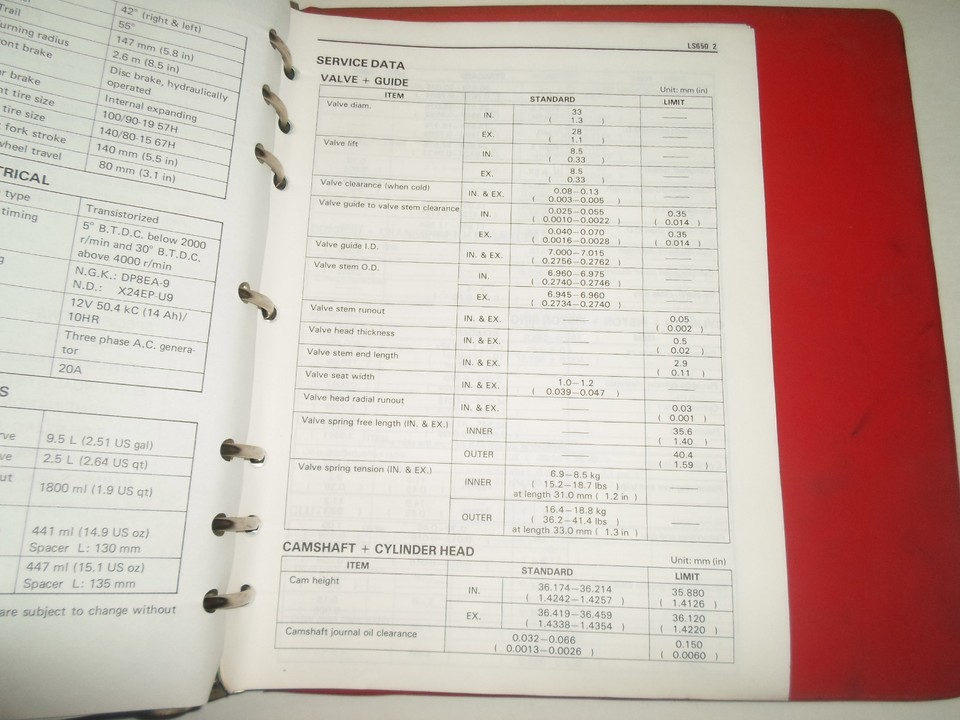 Trail 42° (right & left)
urning radius 55°
ont brake 147 mm (5.8 in)
2.6 m (8.5 in)
r brake Disc brake, hydraulically
operated
nt tire size Internal expanding
tire size 100/90-19 57H
fork stroke 140/80-15 67H
wheel travel 140 mm (5.5 in)
80 mm (3.1 in)
TRICAL
type Transistorized
timing 5° B.T.D.C. below 2000
r/min and 30° B.T.D.C.
above 4000 r/min
g N.G.K.: DP8EA-9
N.D.: X24EP-U9
12V 50.4 kC (14 Ah)/
10HR
Three phase A.C. genera-
tor
20A
S
rve 9.5 L (2.51 US gal)
ve 2.5 L (2.64 US qt)
ut 1800 ml (1.9 US qt)
441 ml (14.9 US oz)
Spacer L: 130 mm
447 ml (15.1 US oz)
Spacer L: 135 mm
are subject to change without
LS650 2
SERVICE DATA
VALVE + GUIDE Unit: mm (in)
ITEM STANDARD LIMIT
Valve diam. IN. 33 ——
( 1.3 )
EX. 28 ——
( 1.1 )
Valve lift IN. 8.5 ——
( 0.33 )
EX. 8.5 ——
( 0.33 )
Valve clearance (when cold) IN. & EX. 0.08—0.13 ——
( 0.003—0.005 )
Valve guide to valve stem clearance IN. 0.025—0.055 0.35
( 0.0010—0.0022 ) ( 0.014 )
EX. 0.040—0.070 0.35
( 0.0016—0.0028 ) ( 0.014 )
Valve guide I.D. IN. & EX. 7.000—7.015 ——
( 0.2756—0.2762 )
Valve stem O.D. IN. 6.960—6.975 ——
( 0.2740—0.2746 )
EX. 6.945—6.960 ——
( 0.2734—0.2740 )
Valve stem runout IN. & EX. —— 0.05
( 0.002 )
Valve head thickness IN. & EX. —— 0.5
( 0.02 )
Valve stem end length IN. & EX. —— 2.9
( 0.11 )
Valve seat width IN. & EX. 1.0—1.2 ——
( 0.039—0.047 )
Valve head radial runout IN. & EX. —— 0.03
( 0.001 )
Valve spring free length (IN. & EX.) INNER —— 35.6
( 1.40 )
OUTER —— 40.4
( 1.59 )
Valve spring tension (IN. & EX.) INNER 6.9—8.5 kg ——
( 15.2—18.7 lbs )
at length 31.0 mm ( 1.2 in )
OUTER 16.4—18.8 kg ——
( 36.2—41.4 lbs )
at length 33.0 mm ( 1.3 in )
CAMSHAFT + CYLINDER HEAD Unit: mm (in)
ITEM STANDARD LIMIT
Cam height IN. 36.174—36.214 35.880
( 1.4242—1.4257 ) ( 1.4126 )
EX. 36.419—36.459 36.120
( 1.4338—1.4354 ) ( 1.4220 )
Camshaft journal oil clearance 0.032—0.066 0.150
( 0.0013—0.0026 ) ( 0.0060 )